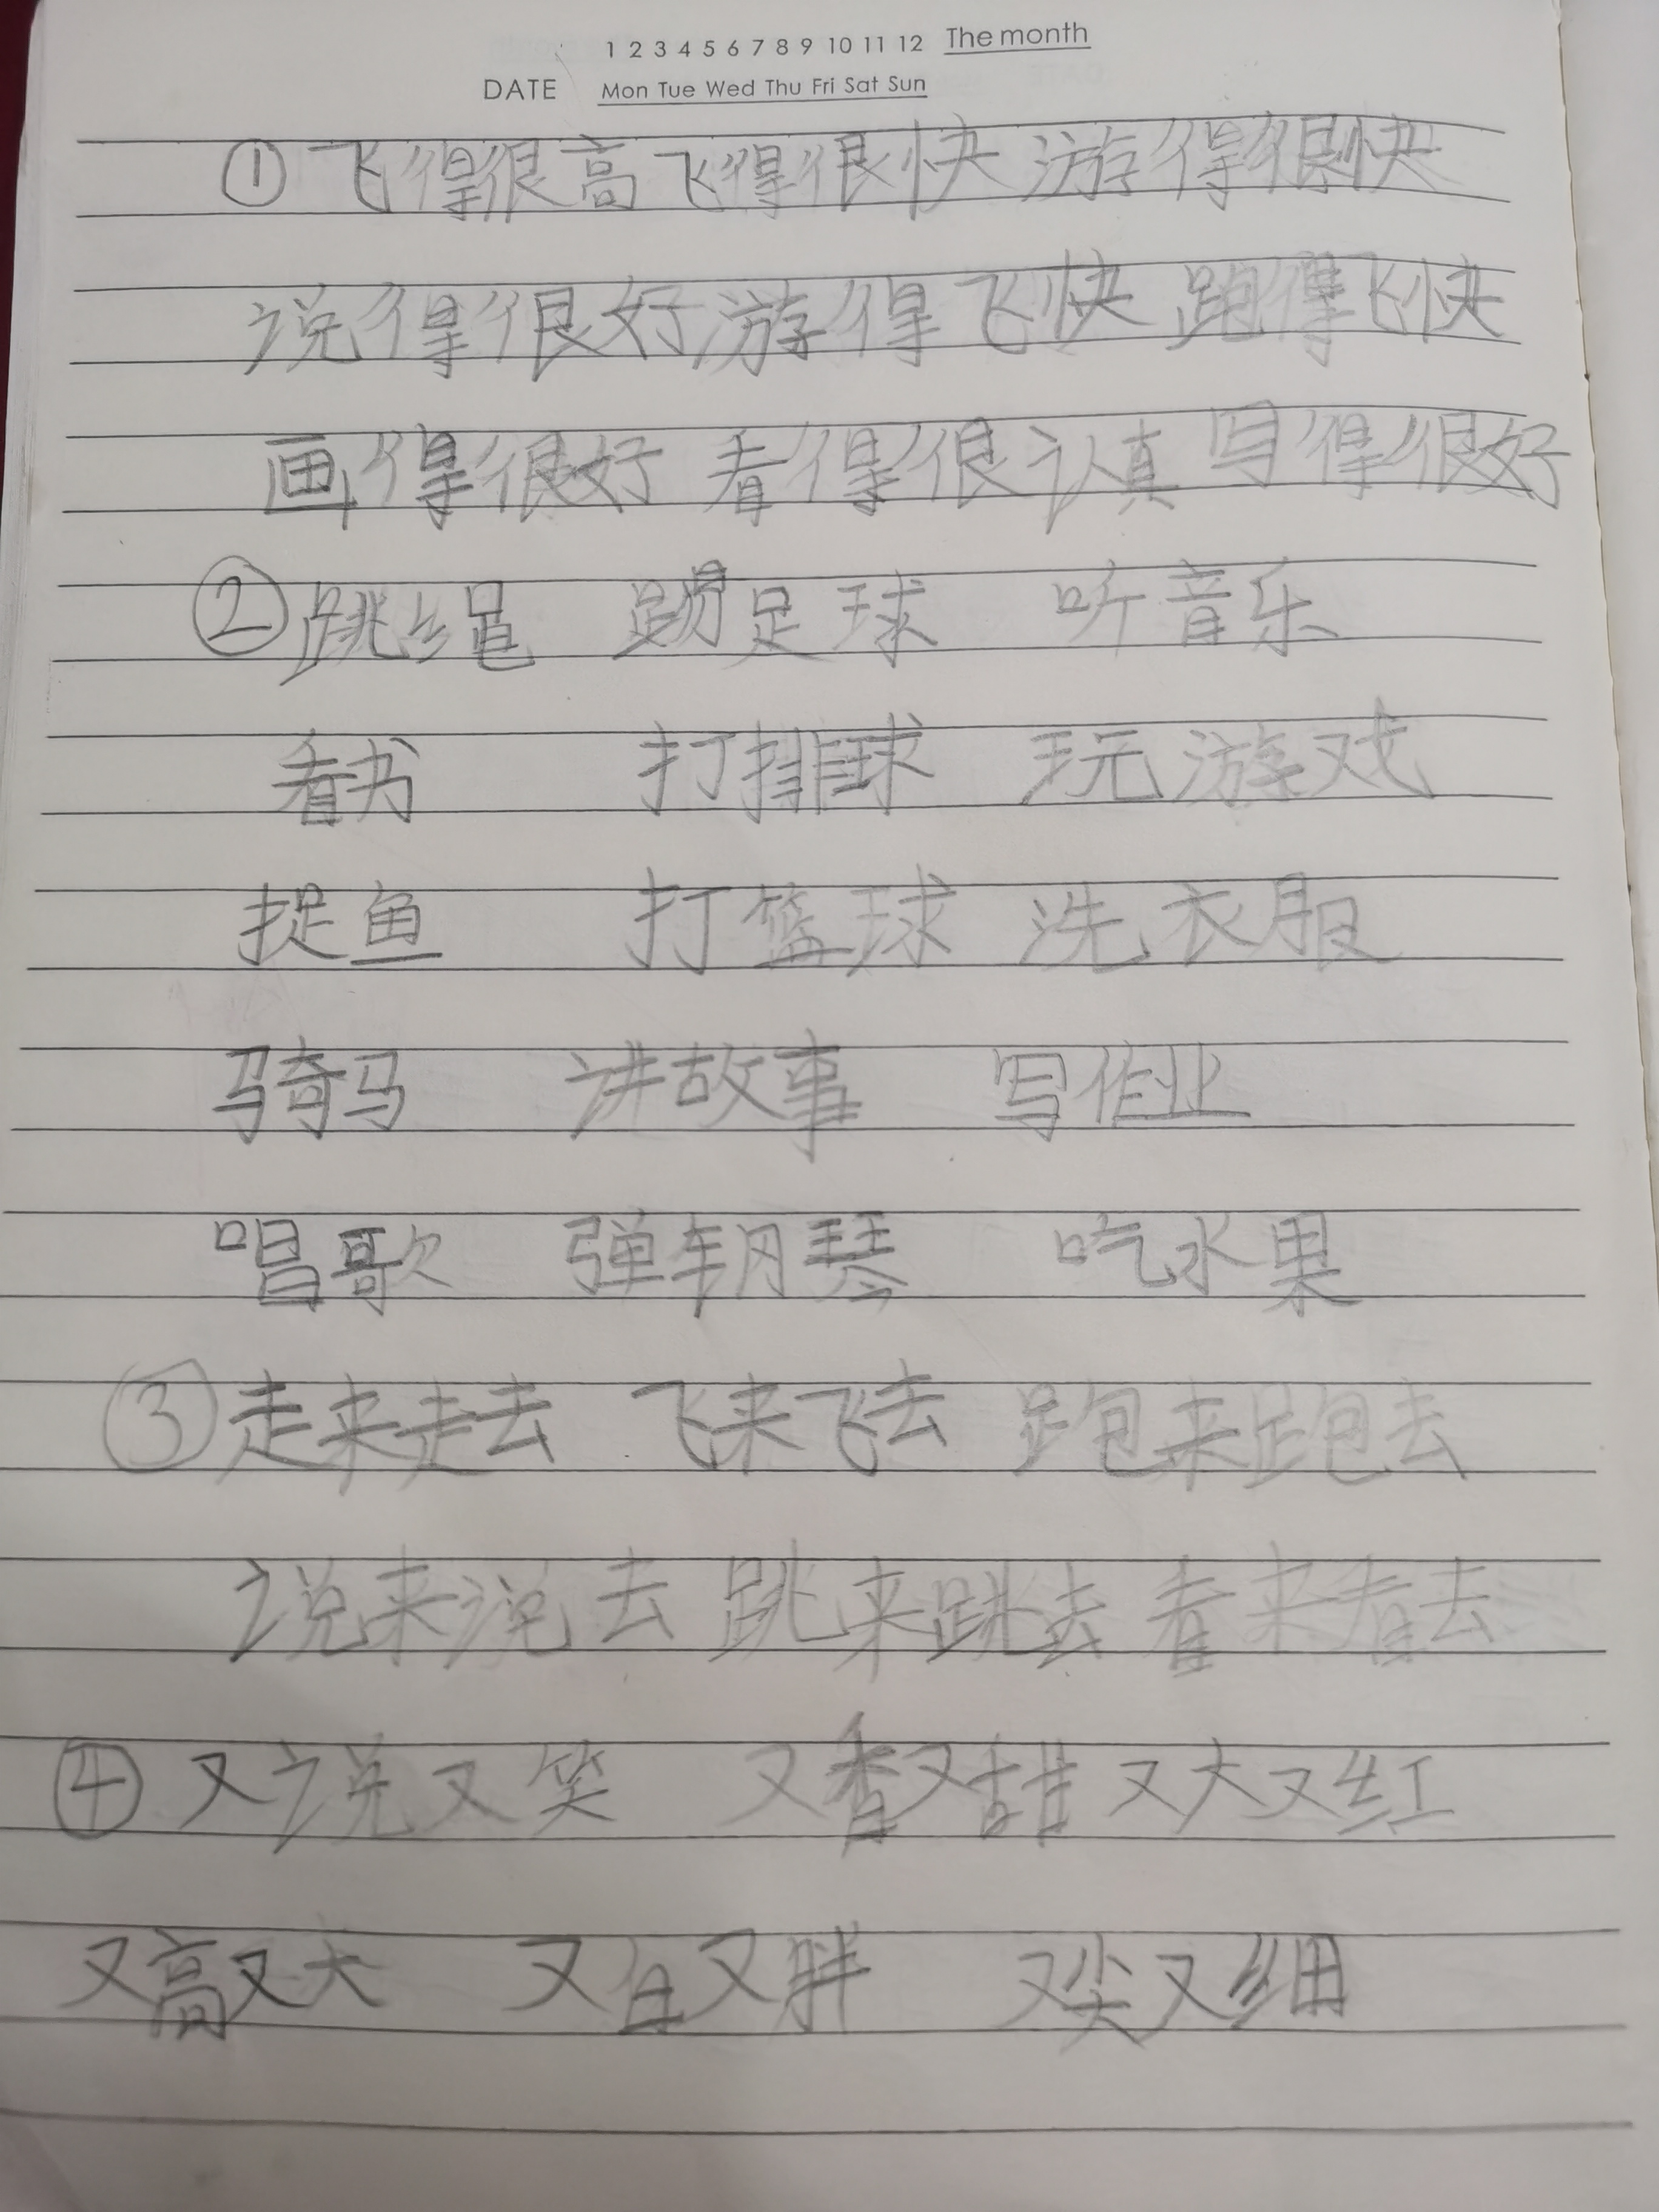 1 2 3 4 5 6 7 8 9 10 11 12 The month
DATE Mon Tue Wed Thu Fri Sat Sun
① 飞得很高 飞得很快 游得很快
说得很好 游得飞快 跑得飞快
画得很好 看得很认真 写得很好
② 跳绳 踢足球 听音乐
看书 打排球 玩游戏
捉鱼 打篮球 洗衣服
骑马 讲故事 写作业
唱歌 弹钢琴 吃水果
③ 走来走去 飞来飞去 跑来跑去
说来说去 跳来跳去 看来看去
④ 又说又笑 又香又甜 又大又红
又高又大 又白又胖 又尖又细